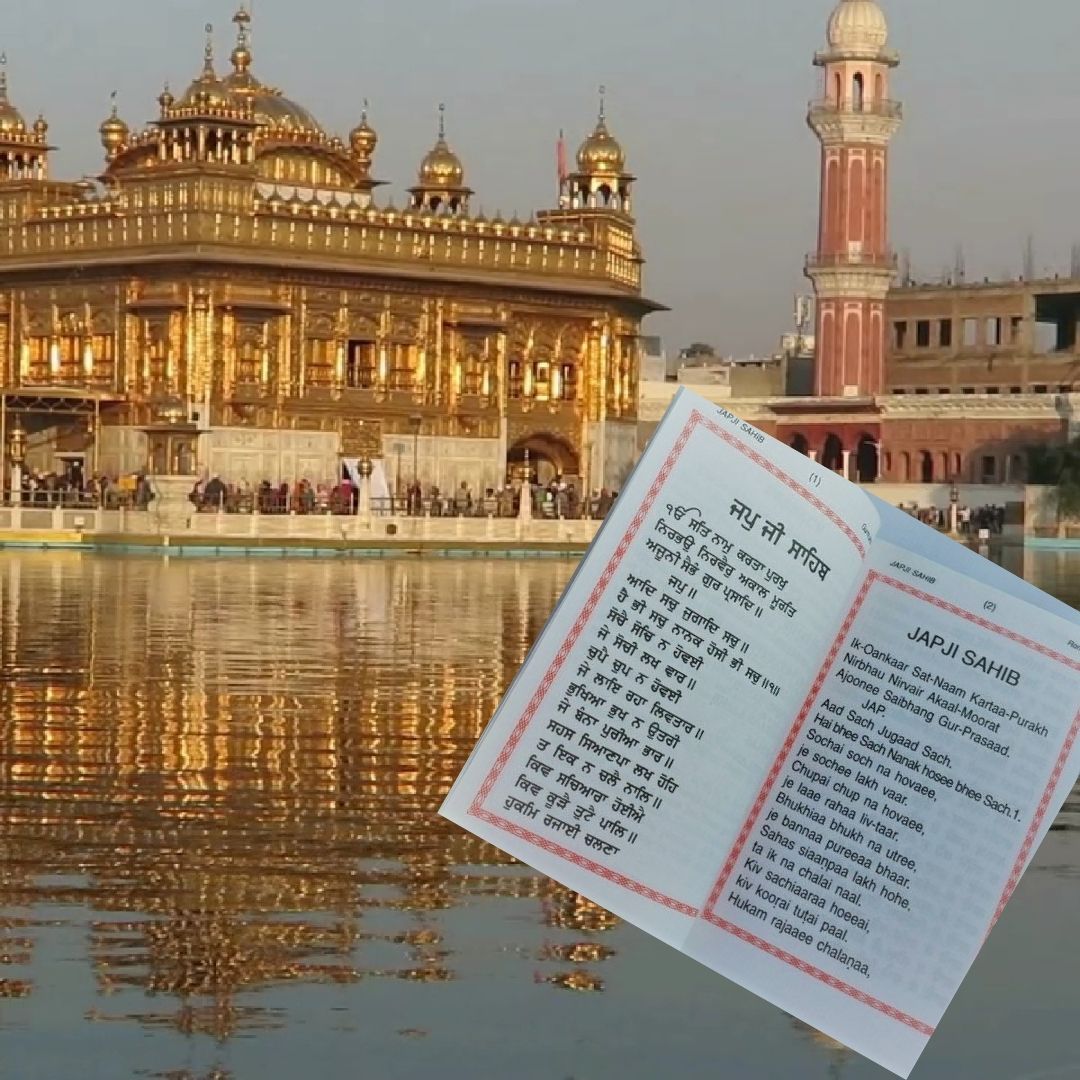 JAPJI SAHIB
(1)
ਜਪੁ ਜੀ ਸਾਹਿਬ
ੴ ਸਤਿ ਨਾਮੁ ਕਰਤਾ ਪੁਰਖੁ
ਨਿਰਭਉ ਨਿਰਵੈਰੁ ਅਕਾਲ ਮੂਰਤਿ
ਅਜੂਨੀ ਸੈਭੰ ਗੁਰ ਪ੍ਰਸਾਦਿ॥
ਜਪੁ॥
ਆਦਿ ਸਚੁ ਜੁਗਾਦਿ ਸਚੁ॥
ਹੈ ਭੀ ਸਚੁ ਨਾਨਕ ਹੋਸੀ ਭੀ ਸਚੁ॥੧॥
ਸੋਚੈ ਸੋਚਿ ਨ ਹੋਵਈ
ਜੇ ਸੋਚੀ ਲਖ ਵਾਰ॥
ਚੁਪੈ ਚੁਪ ਨ ਹੋਵਈ
ਜੇ ਲਾਇ ਰਹਾ ਲਿਵਤਾਰ॥
ਭੁਖਿਆ ਭੁਖ ਨ ਉਤਰੀ
ਜੇ ਬੰਨਾ ਪੁਰੀਆ ਭਾਰ॥
ਸਹਸ ਸਿਆਣਪਾ ਲਖ ਹੋਹਿ
ਤ ਇਕ ਨ ਚਲੈ ਨਾਲਿ॥
ਕਿਵ ਸਚਿਆਰਾ ਹੋਈਐ
ਕਿਵ ਕੂੜੈ ਤੁਟੈ ਪਾਲਿ॥
ਹੁਕਮਿ ਰਜਾਈ ਚਲਣਾ
JAPJI SAHIB
(2)
JAPJI SAHIB
Ik-Oankaar Sat-Naam Kartaa-Purakh
Nirbhau Nirvair Akaal-Moorat
Ajoonee Saibhang Gur-Prasaad.
JAP.
Aad Sach, Jugaad Sach.
Hai bhee Sach Nanak hosee bhee Sach.1.
Sochai soch na hovaee,
je sochee lakh vaar.
Chupai chup na hovaee,
je laae rahaa liv-taar.
Bhukhiaa bhukh na utree,
je bannaa pureeaa bhaar.
Sahas siaanpaa lakh hohe,
ta ik na chalai naal.
Kiv sachiaaraa hoeeai,
kiv kooṛai tutai paal.
Hukam rajaaee chalaṇaa,